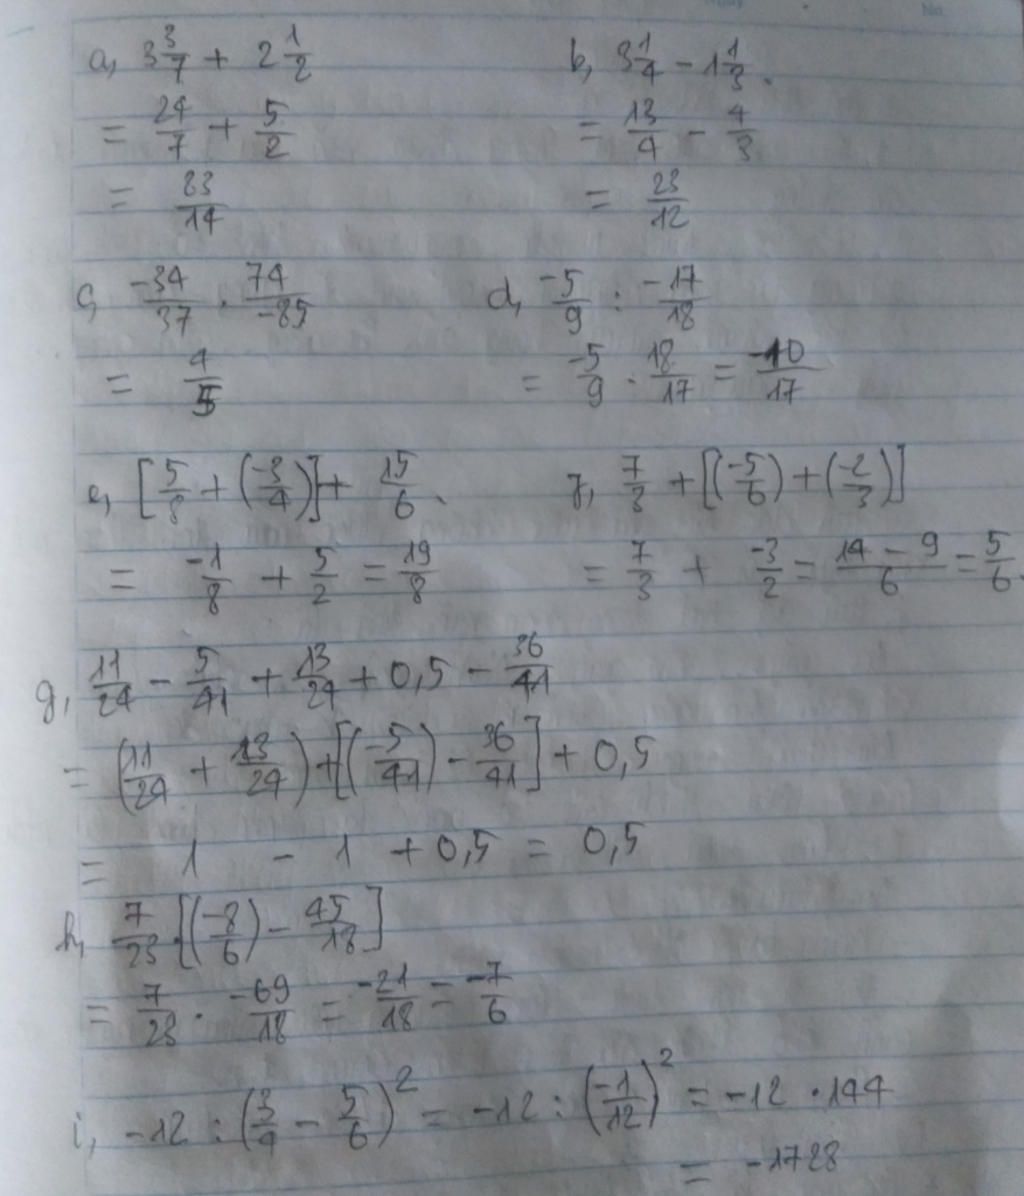 a, 3 3/7 + 2 1/2
= 24/7 + 5/2
= 83/14
b, 3 1/4 - 1 1/3.
= 13/4 - 4/3
= 23/12
c, -34/37 . 74/-85
= 4/5
d, -5/9 : -17/18
= -5/9 . 18/17 = -10/17
e, [5/8 + (-3/4)] + 15/6.
= -1/8 + 5/2 = 19/8
f, 7/3 + [(-5/6) + (-2/3)]
= 7/3 + -3/2 = 14 - 9/6 = 5/6.
g, 11/24 - 5/41 + 13/24 + 0,5 - 36/41
= (11/24 + 13/24) + [(-5/41) - 36/41] + 0,5
= 1 - 1 + 0,5 = 0,5
h, 7/23 . [(-8/6) - 45/18]
= 7/23 . -69/18 = -21/18 = -7/6
i, -12 : (3/4 - 5/6)² = -12 : (-1/12)² = -12 . 144
= -1728